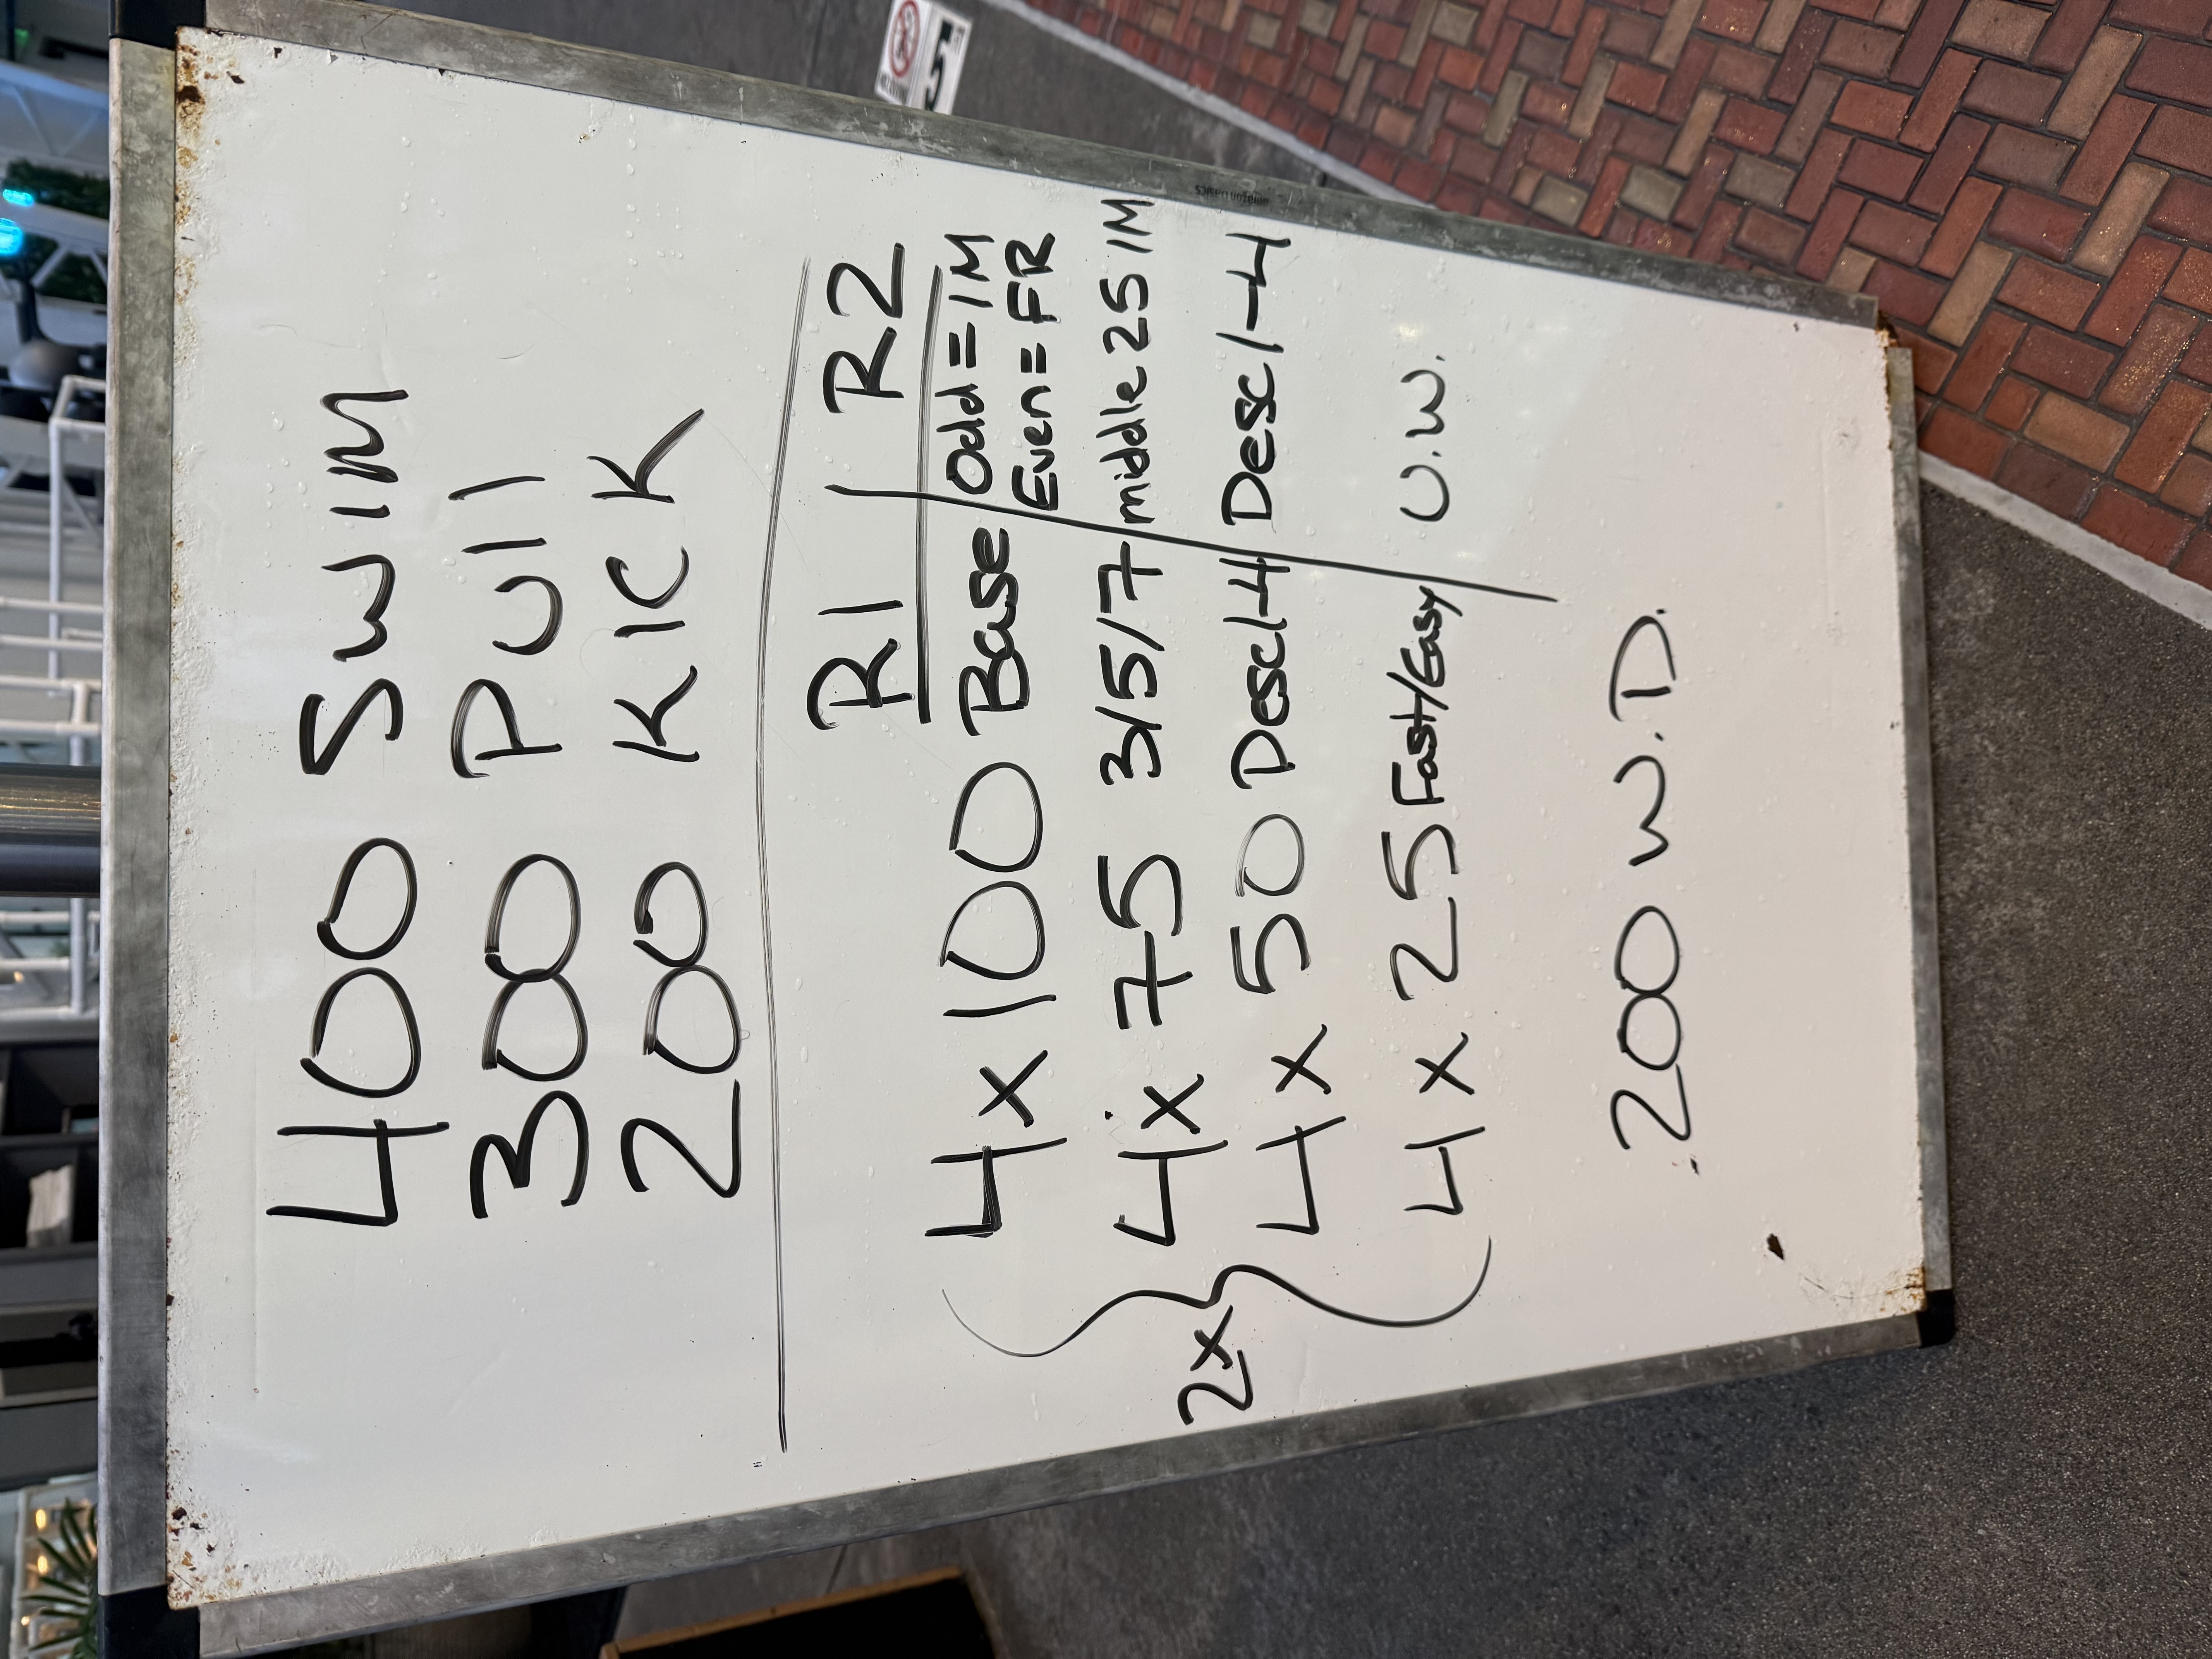 400 SWIM
300 PUll
200 KICK
R1 R2
4x 100 Base Odd = IM
Even = FR
4x 75 3/5/7 middle 25 IM
2x 4x 50 Desc 1-4 Desc 1-4
4x 25 Fast/Easy U.W.
200 W.D.
amazon basics
5